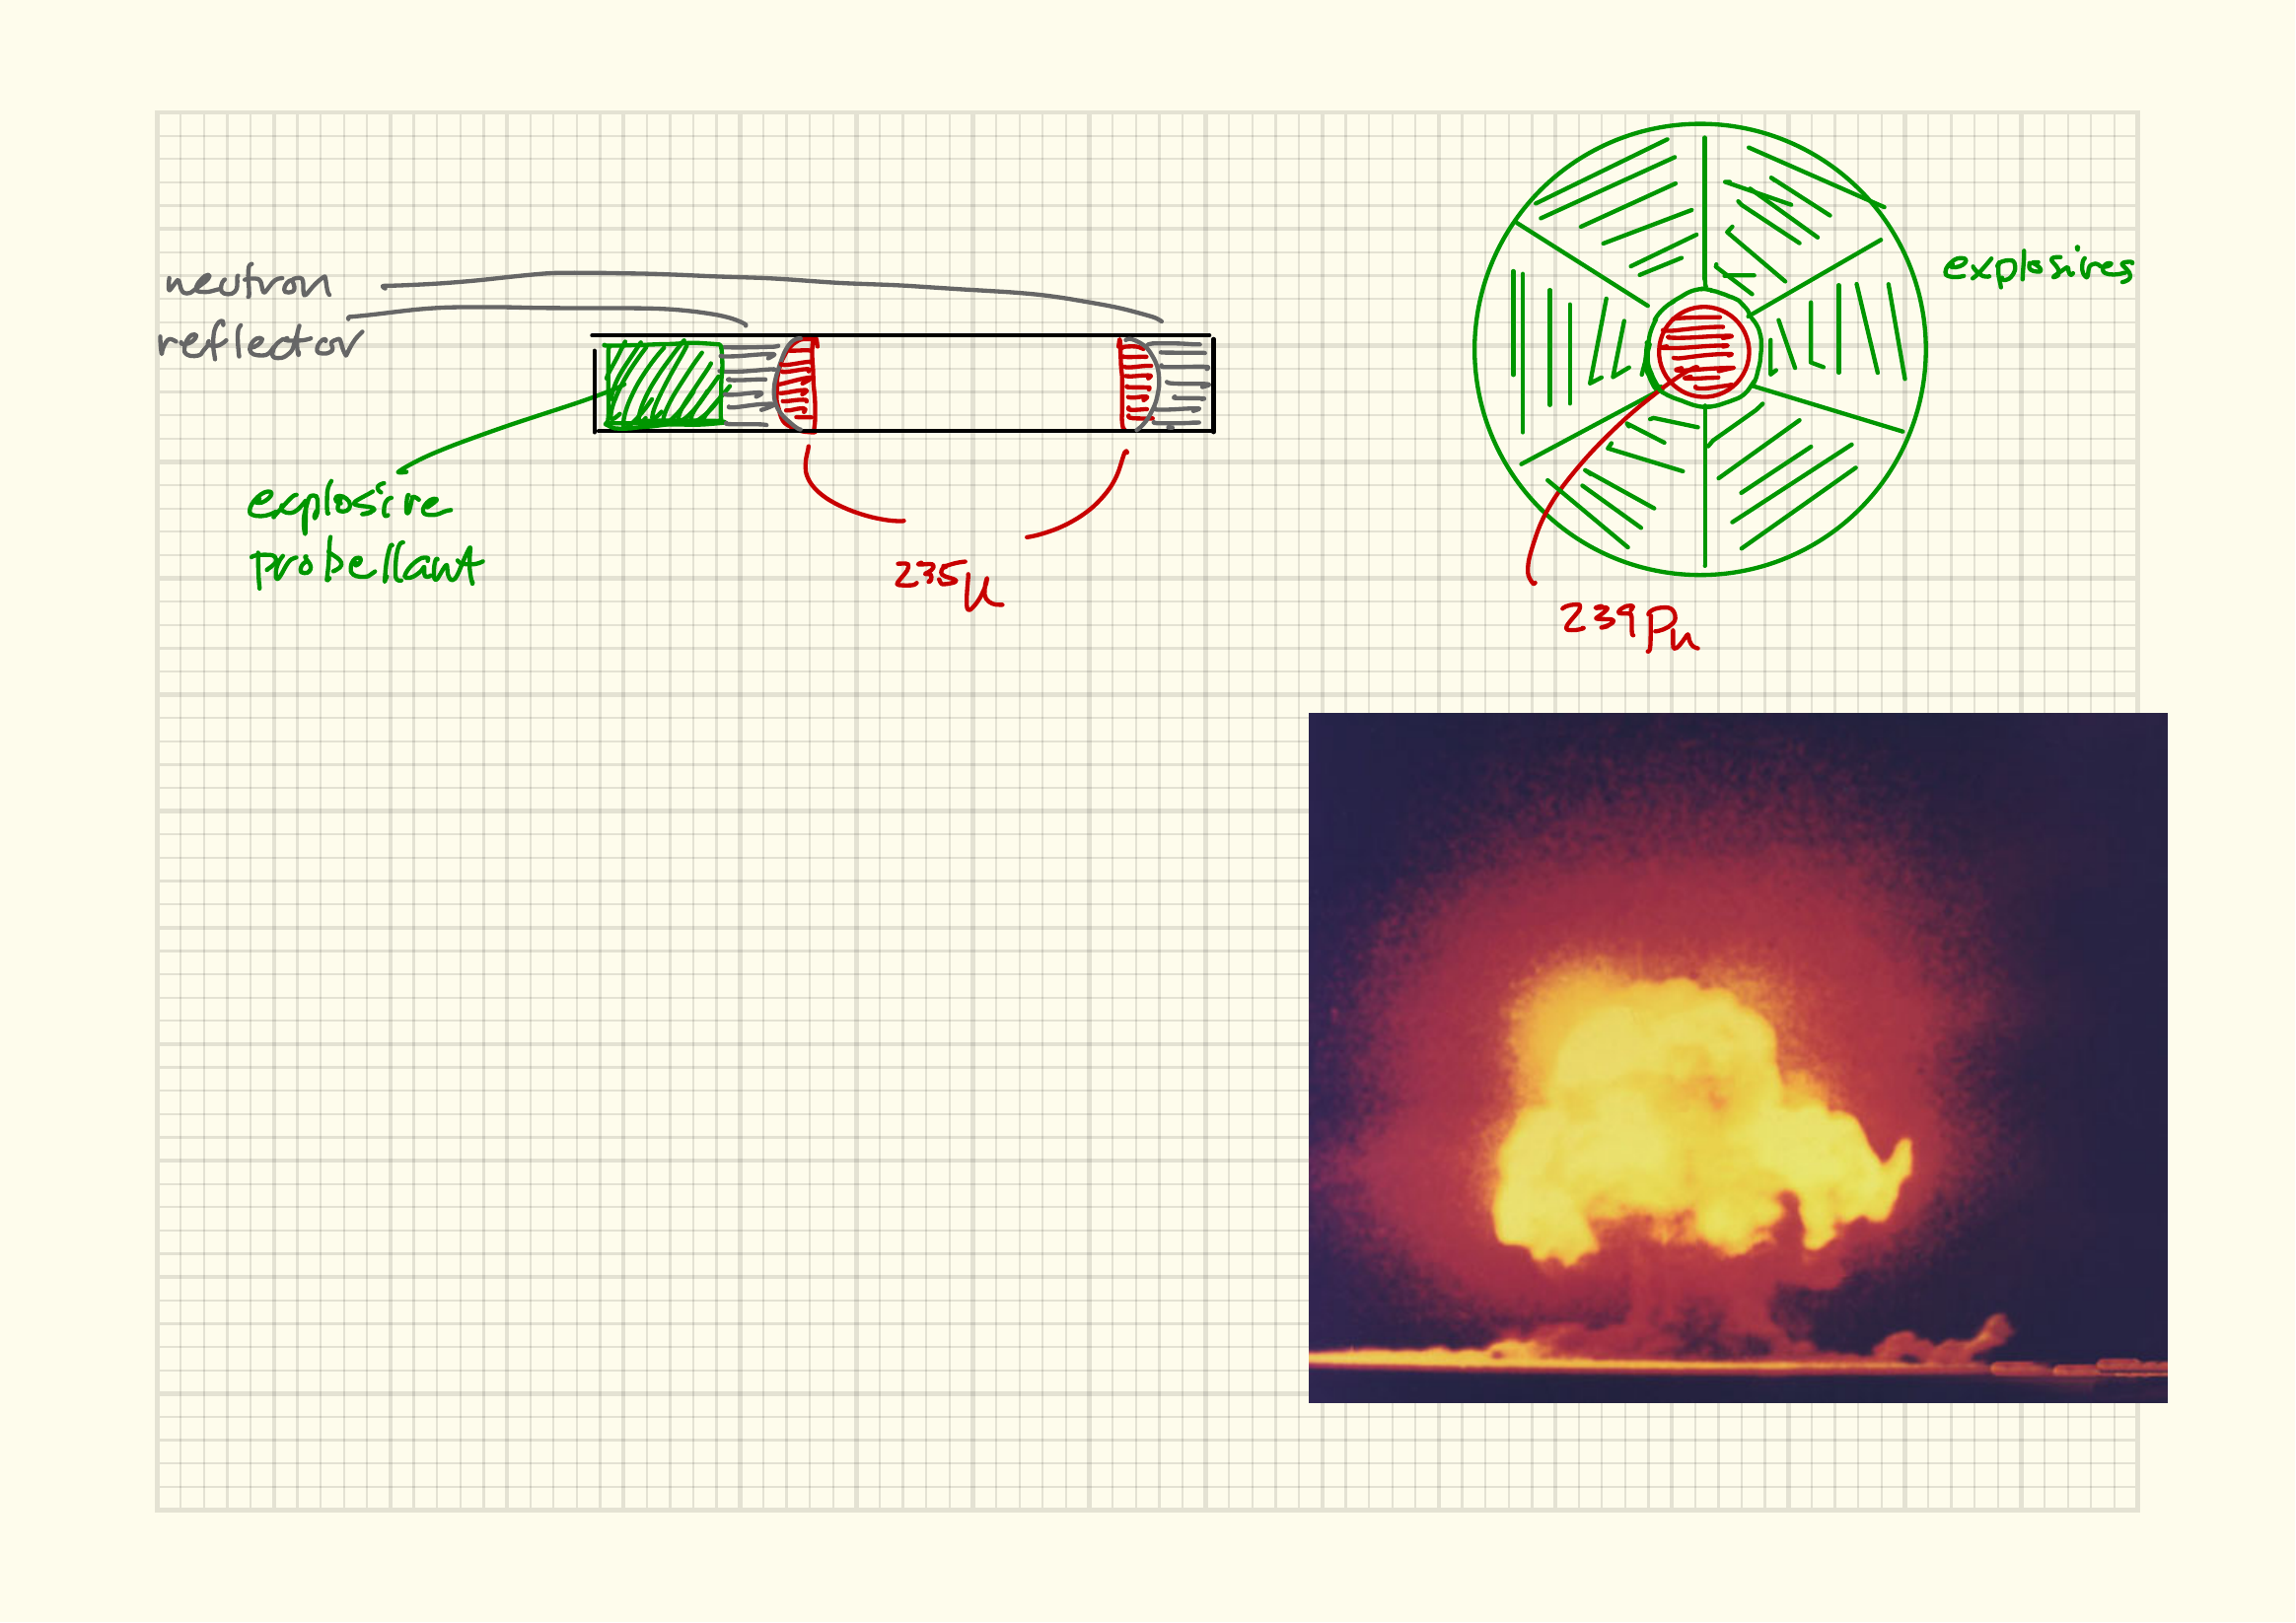 neutron
reflector
explosive
probellant
235U
explosives
239Pu